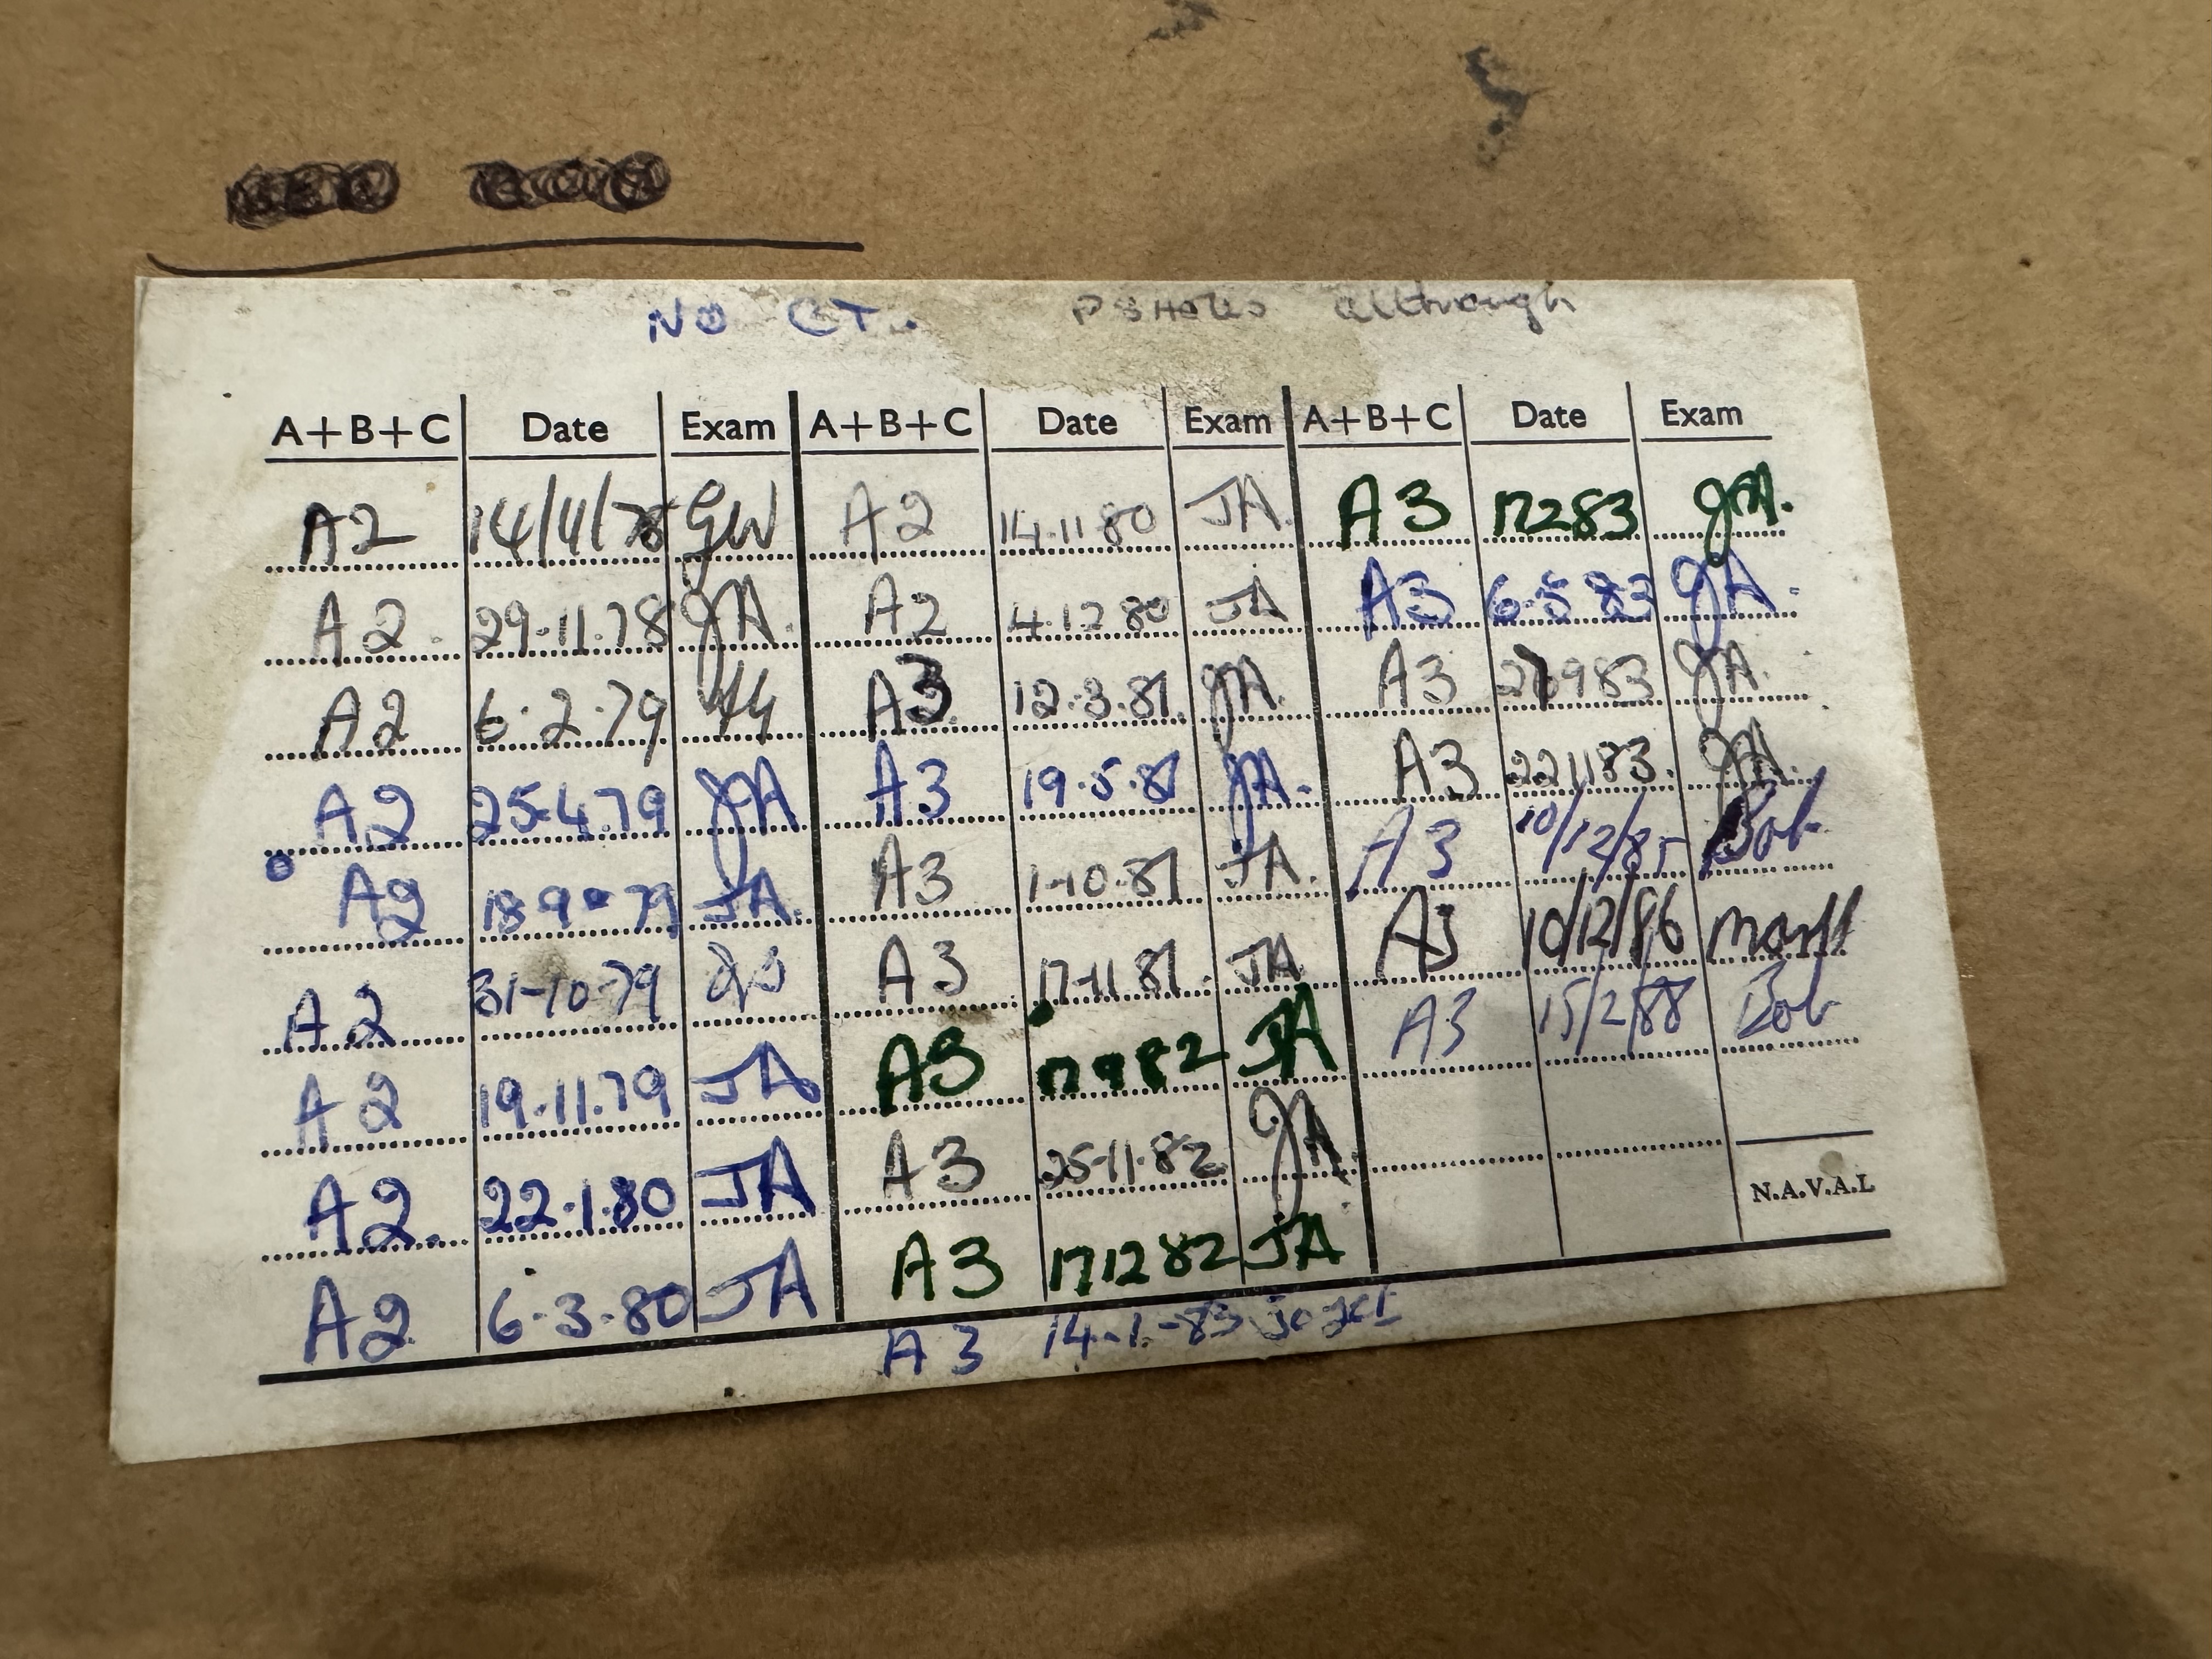 NO CT. P5 HOLES although
A+B+C Date Exam A+B+C Date Exam A+B+C Date Exam
A2 14/4/78 GW A2 14.11 80 JA. A3 17283 JA.
A2. 29.11.78 JA. A2 4.12 80 JA A3 6.5 83 JA.
A2 6.2.79 A3. 12.3.81. JA. A3 983 JA.
A2 25.4.79 JA A3 19.5.81 JA. A3 221183. JA.
A2 18 9 79 JA. A3 1-10.81 JA. A3 10/12/85 Bob
A2 31-10-79 A3 17-11 81. JA A3 10/12/86
A2 19.11.79 JA A3 17982 JA A3 15/2/88 Bob
A2. 22.1.80 JA A3 25-11.82 JA.
A2 6.3.80 JA A3 171282 JA
N.A.V.A.L
A3 14-1-83